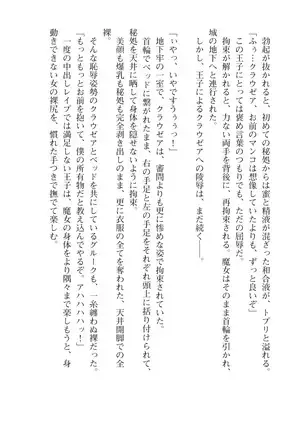 勃起されると、初めての秘処からは蜜と精液が混じった和合液が、トプリと溢れる。
「ふぅ…クラウゼア、お前のマンコは想像していたよりも、ずっと良いぞ」
この王子にとっては褒め言葉のつもりでも、ただただ屈辱だ。
拘束が解かれると、力ない両手を背後に、再拘束される。魔女はそのまま首輪を引かれ、
城の地下へと連行された。
王子によるクラウゼアへの陵辱は、まだ続く――。
「いやっ、いやですうぅっ！」
地下牢の一室で、クラウゼアは、審問よりも更に惨めな姿で拘束されていた。
首輪でベッドに繋がれたまま、右の手足と左の手足をそれぞれ頭上に括り付けられて、
秘処を天井に晒して隠せないように拘束。
美顔も爆乳も秘処も完全剥き出しのまま、更に衣服の全てを奪われた、天井開脚での全
裸。
そんな恥辱姿勢のクラウゼアとベッドを共にしているグルークも、一糸纏わぬ裸だった。
「もっともっとお前を抱いて、僕の所有物だと教え込んでやるぞ。アハハハハッ！」
一度の中出しレイプでは満足しない王子は、魔女の身体をより隅々まで楽しもうと、身
動きできない女の裸尻を、慣れた手つきで撫でて楽しむ。